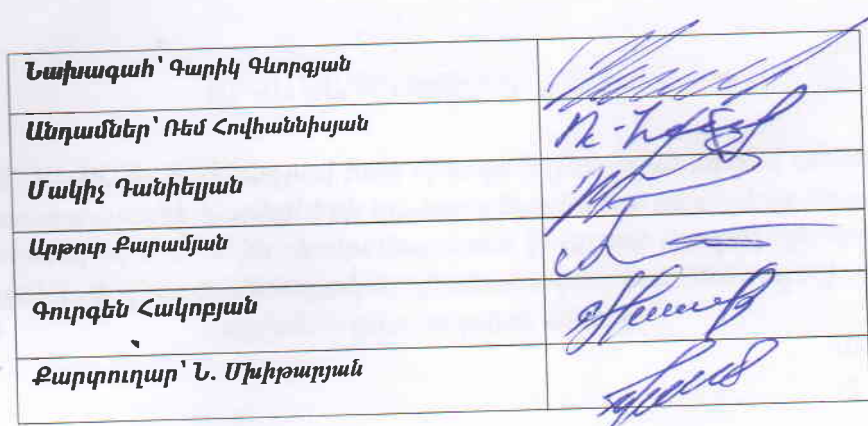 Նախագահ՝ Գարիկ Գևորգյան
Անդամներ՝ Ռեմ Հովհաննիսյան
Մակիչ Դանիելյան
Արթուր Քարամյան
Գուրգեն Հակոբյան
Քարտուղար՝ Ն. Մխիթարյան